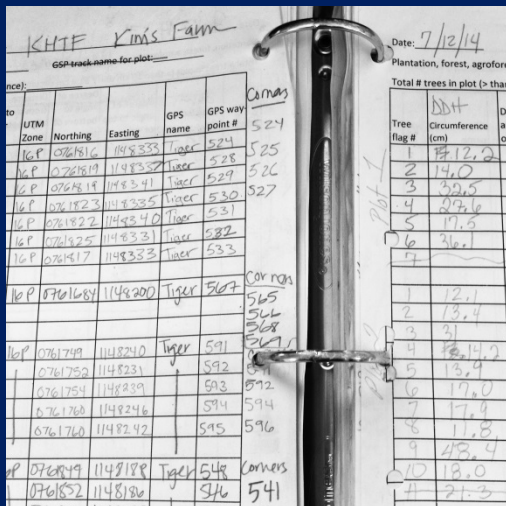 KHTF Kim's Farm
GSP track name for plot:
nce):
to
UTM Zone Northing Easting GPS name GPS way point # Corners
16P 0761816 1148333 Tiger 524 524
16P 0761819 1148337 Tiger 528 525
16P 0761819 1148341 Tiger 529 526
16P 0761823 1148335 Tiger 530 527
16P 0761822 1148340 Tiger 531
16P 0761825 1148331 Tiger 532
16P 0761817 1148333 Tiger 533
Corners
16P 0761684 1148200 Tiger 567 565
566
568
569
16P 0761749 1148240 Tiger 591
0761752 1148231 592
0761754 1148239 593 592
0761760 1148246 594 594
0761760 1148242 595 596
0761849 1148188 Tiger 548 Corners
0761852 1148186 546 541
Date: 7/12/14
Plantation, forest, agrofore
Total # trees in plot (> tha
DDH
Tree flag # Circumference (cm)
Plot 1
1 12.2
2 14.0
3 32.5
4 27.6
5 17.5
6 36.1
7
1 12.1
2 13.4
3 31
4 14.2
5 13.9
6 17.0
7 17.9
8 11.8
9 48.4
10 18.0
11 21.3